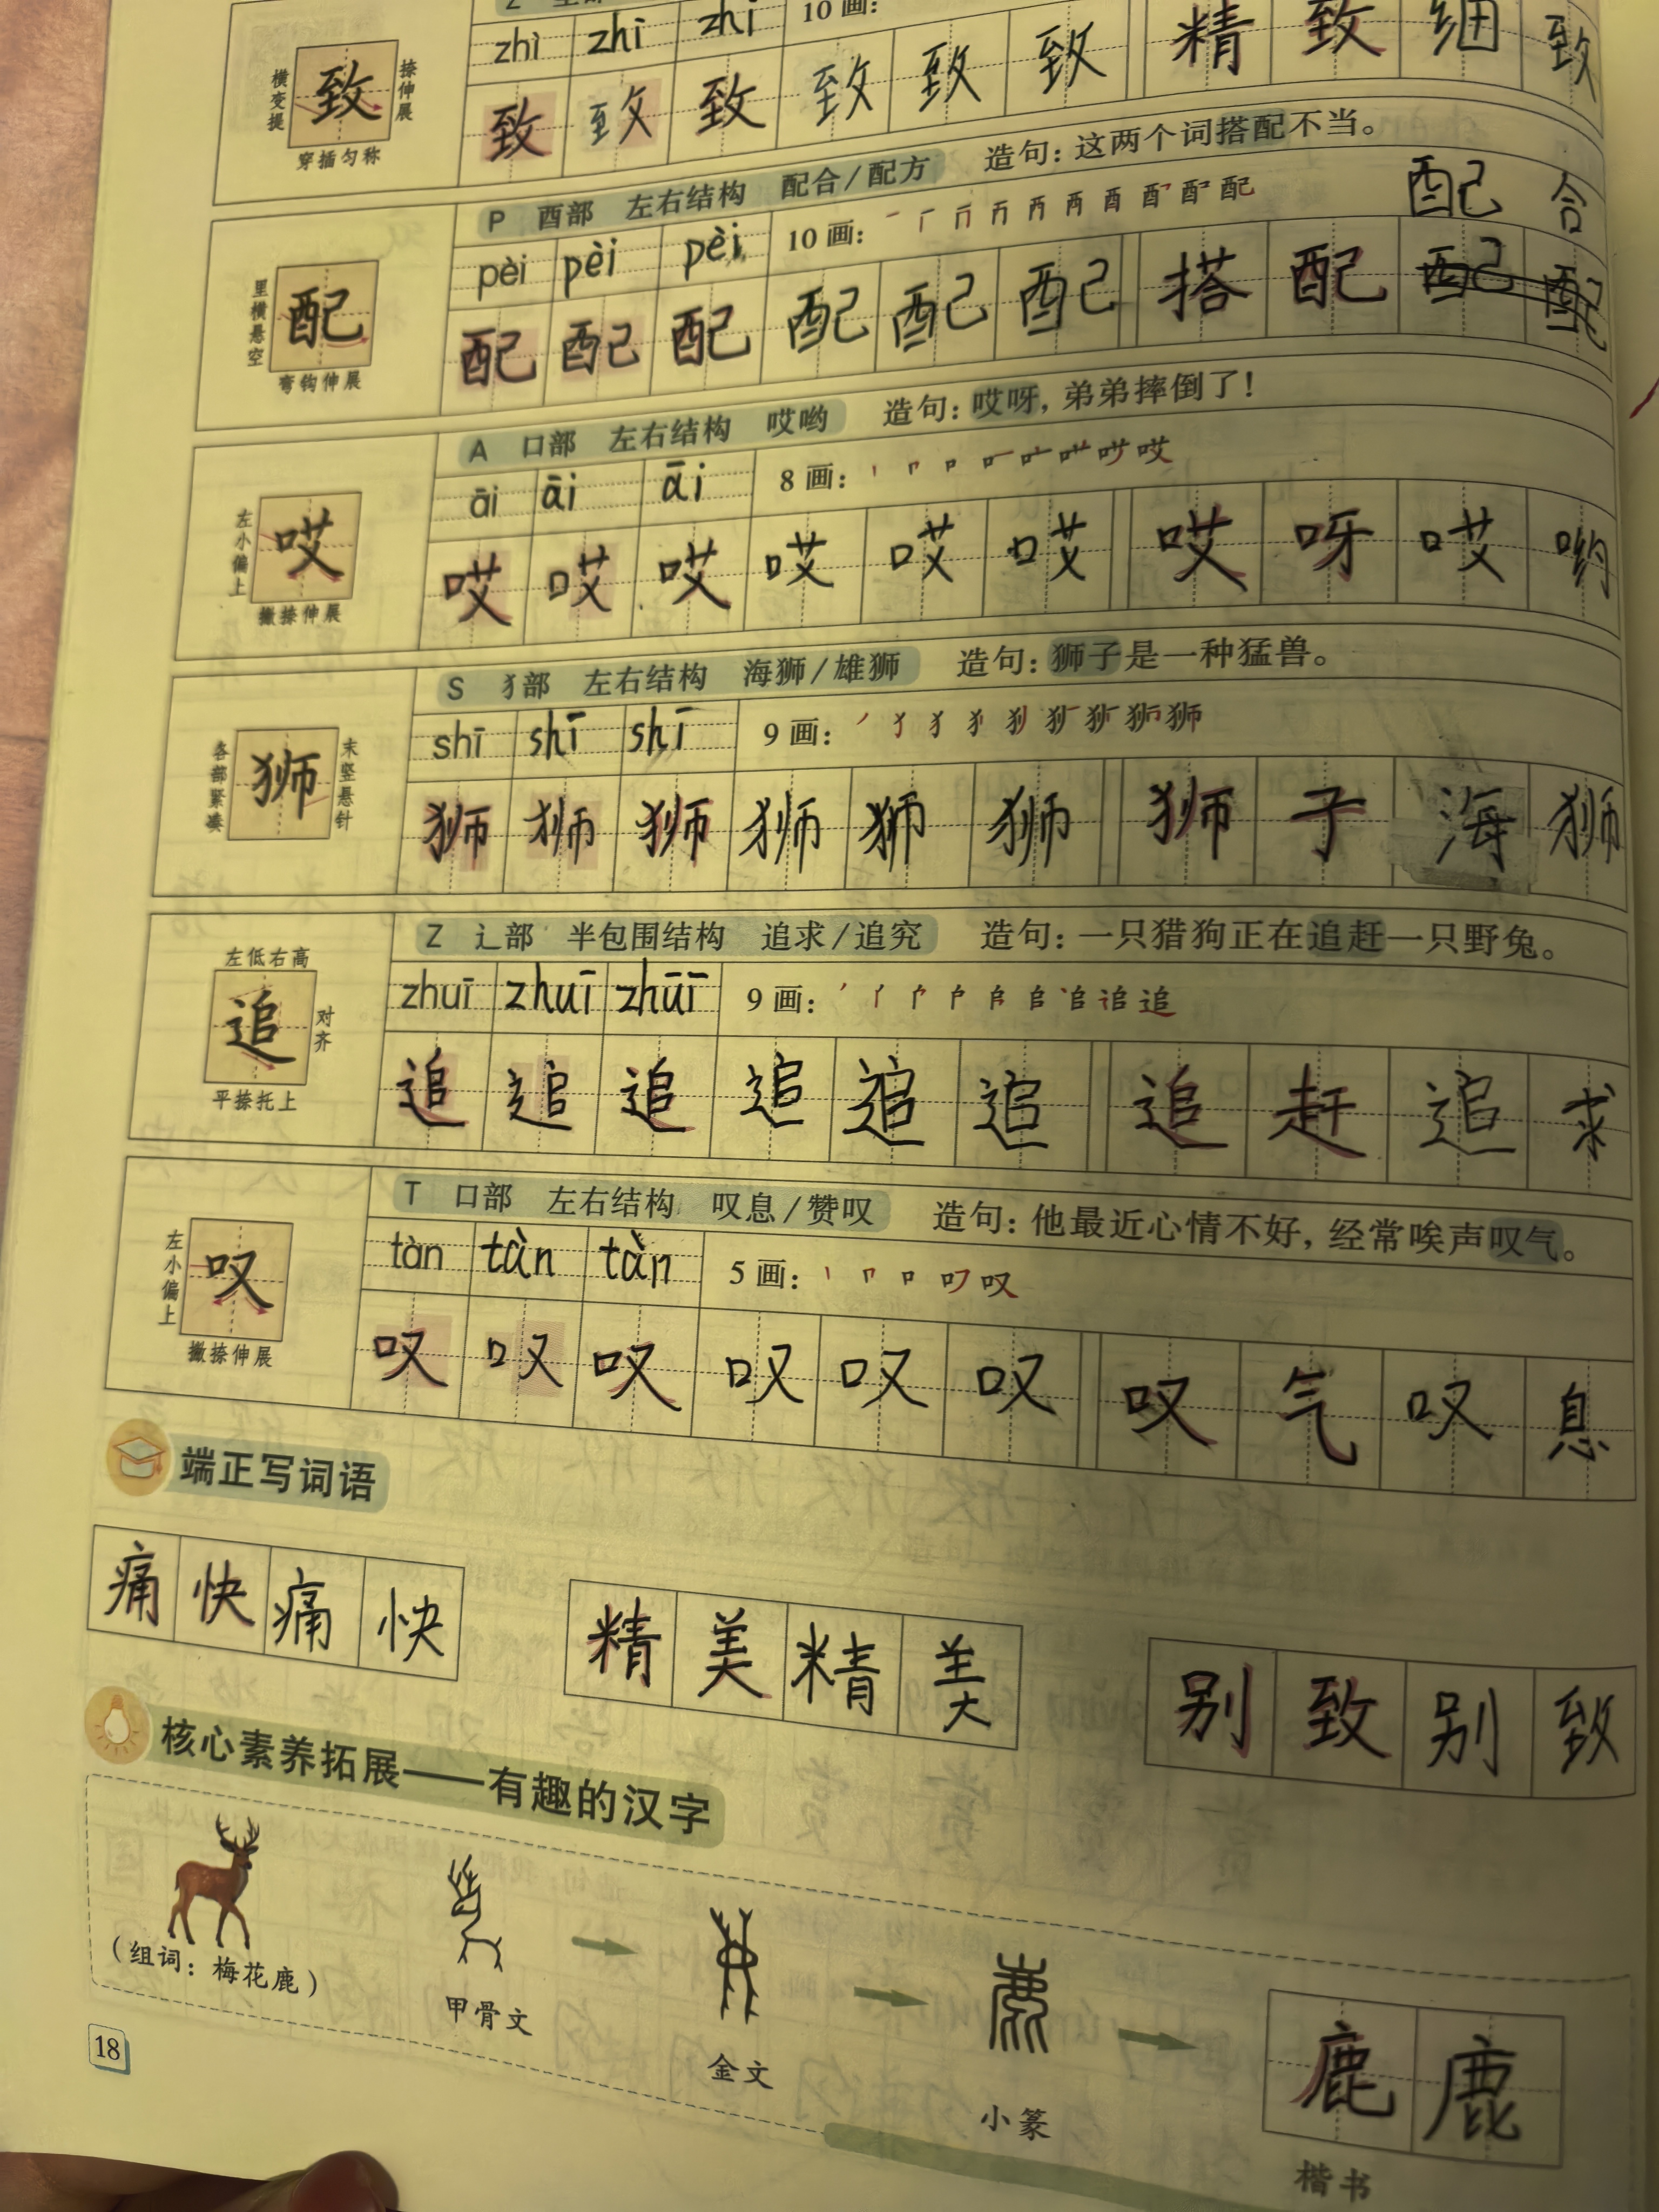 zhì zhì zhì 10 画：
横变提 致 捺伸展 穿插匀称
致 致 致 致 致 致 精 致 细 致
P 酉部 左右结构 配合/配方 造句：这两个词搭配不当。
pèi pèi pèi 10 画： 配 合
里横悬空 配 弯钩伸展
配 配 配 配 配 配 搭 配 配 配
A 口部 左右结构 哎哟 造句：哎呀，弟弟摔倒了！
āi āi āi 8 画：
左小偏上 哎 撇捺伸展
哎 哎 哎 哎 哎 哎 哎 呀 哎 哟
S 犭部 左右结构 海狮/雄狮 造句：狮子是一种猛兽。
shī shī shī 9 画：
各部紧凑 狮 末竖悬针
狮 狮 狮 狮 狮 狮 狮 子 海 狮
Z 辶部 半包围结构 追求/追究 造句：一只猎狗正在追赶一只野兔。
zhuī zhuī zhūī 9 画：
左低右高 追 对齐 平捺托上
追 追 追 追 追 追 追 赶 追 求
T 口部 左右结构 叹息/赞叹 造句：他最近心情不好，经常唉声叹气。
tàn tàn tàn 5 画：
左小偏上 叹 撇捺伸展
叹 叹 叹 叹 叹 叹 叹 气 叹 息
端正写词语
痛 快 痛 快 精 美 精 美 别 致 别 致
核心素养拓展——有趣的汉字
（组词：梅花鹿） 甲骨文 金文 小篆 鹿 鹿 楷书
18